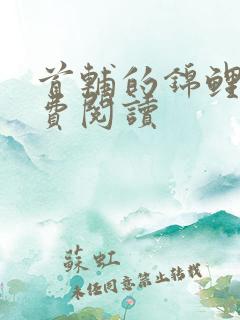 首輔的錦鯉
費閱讀
蘇虹
未經同意禁止轉載